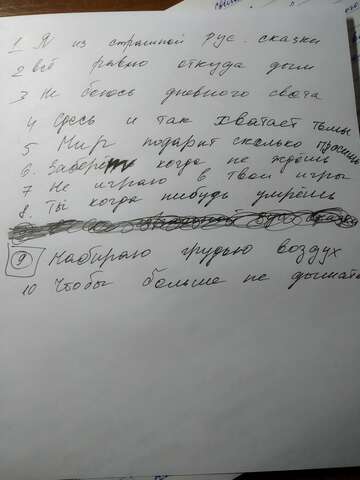 1 Я из страшной рус. сказки
2 всё равно откуда дым
3 Не боюсь дневного света
4 Сдесь и так хватает тьмы
5 Мир подарит сколько просишь
6. Заберёт когда не ждёшь
7 Не играю в твои игры
8. Ты когда нибудь умрёшь
9 Набираю грудью воздух
10 Чтобы больше не дышать